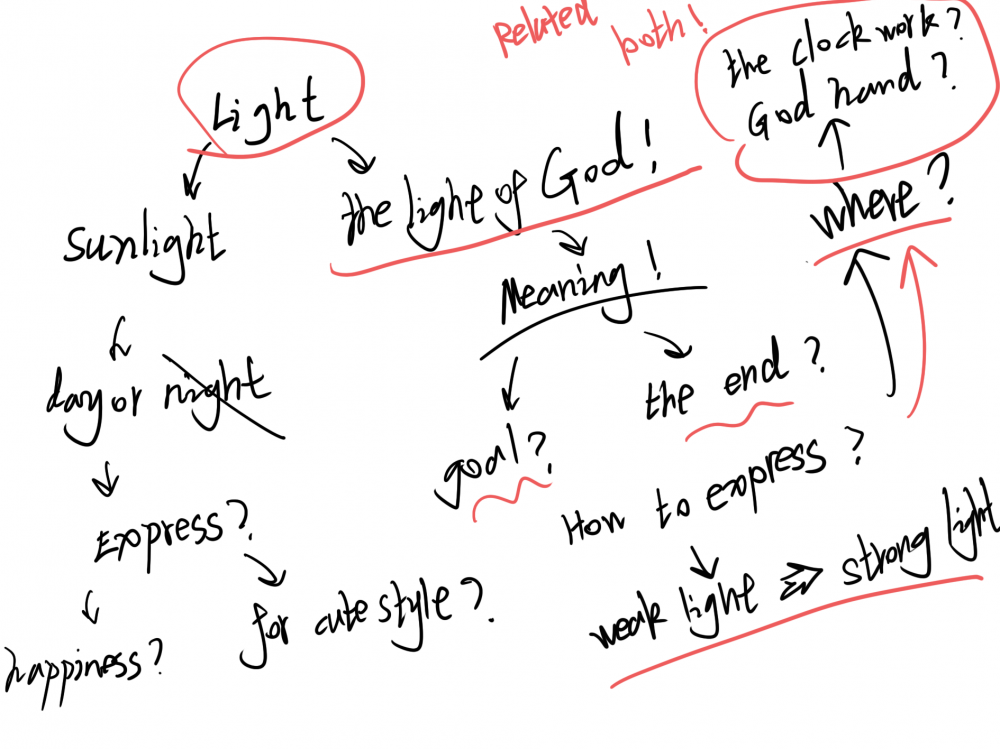 Related both!
the clock work?
God hand?
Light
where?
the light of God!
sunlight
Meaning!
day or night
the end?
goal?
How to express?
Express?
weak light ⇒ strong light
for cute style?
happiness?